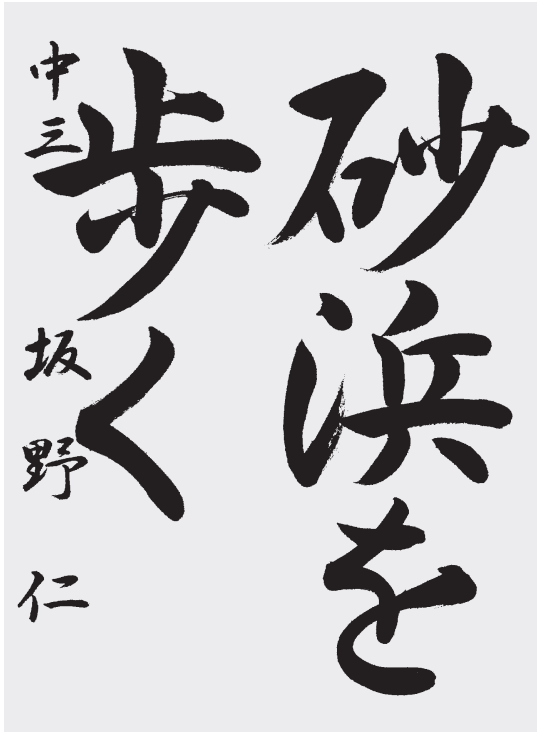 砂浜を
歩く
中三 坂野 仁